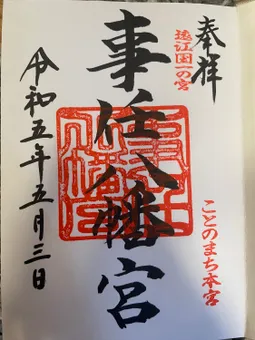 奉拝
遠江国一の宮
ことのまち本宮
事任八幡宮
令和五年五月三日